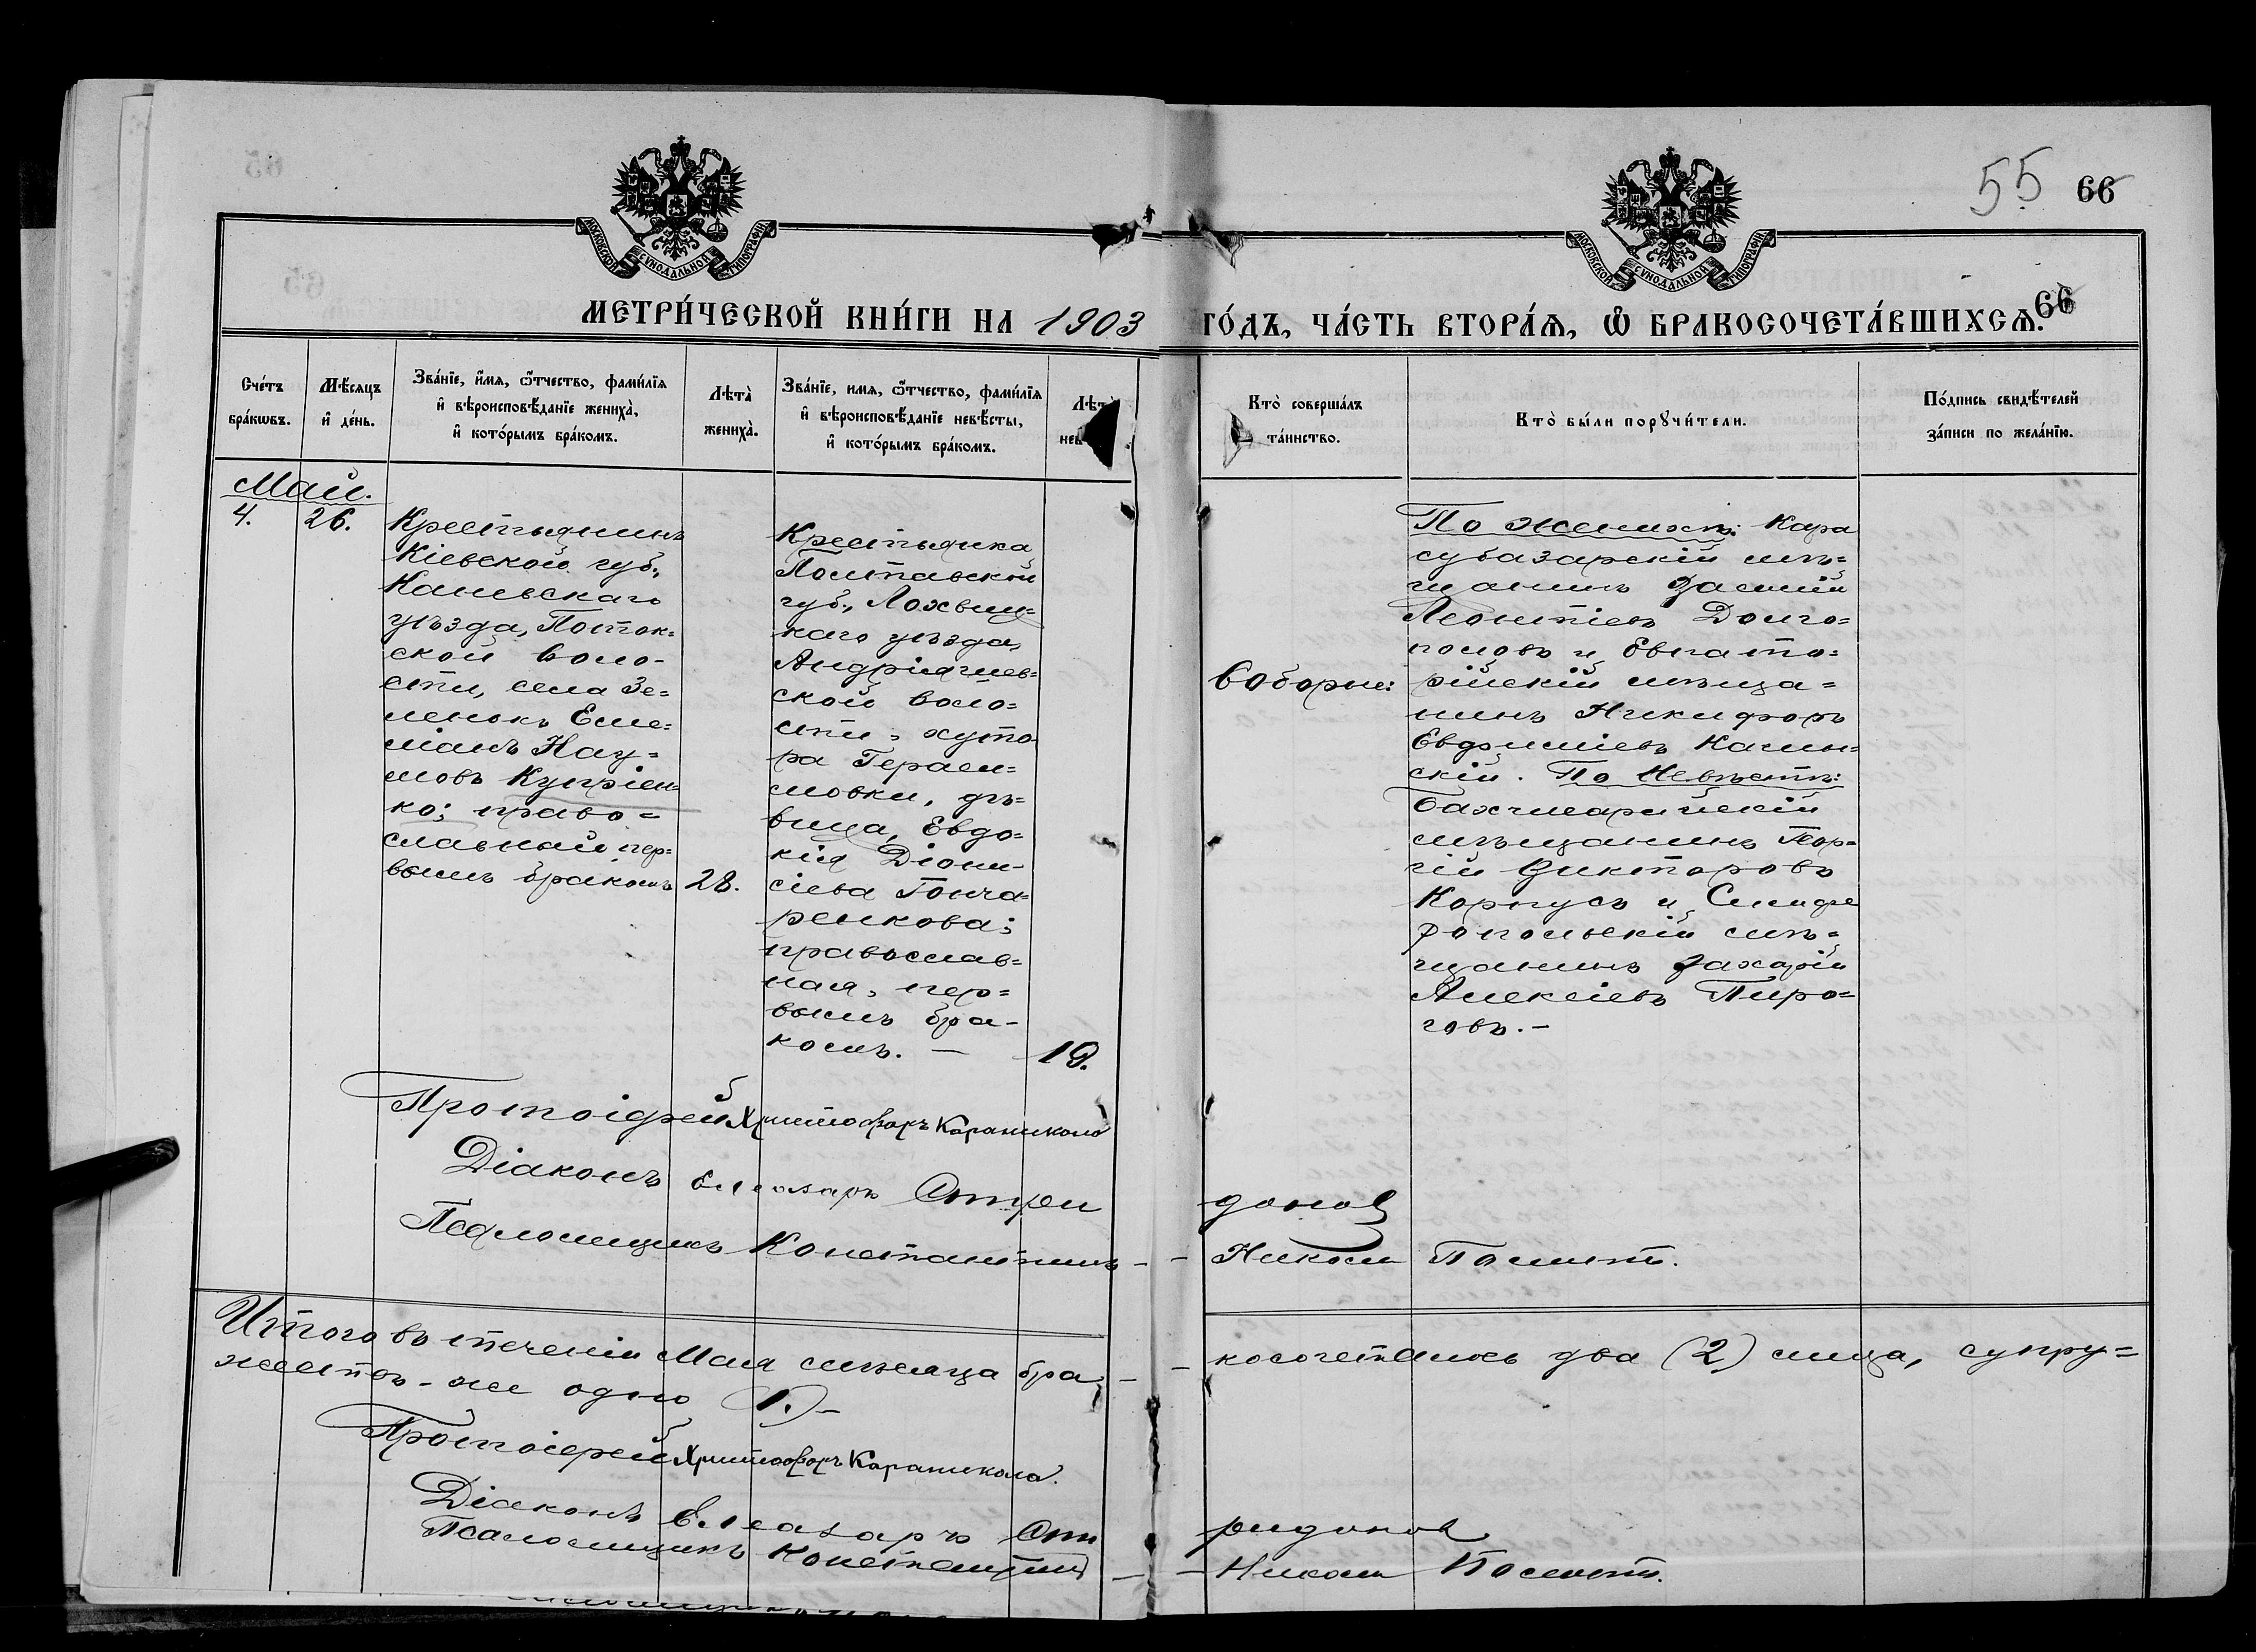 55 66
МОСКОВСКОЙ СУНОДАЛЬНОЙ ТИПОГРАФІИ
МОСКОВСКОЙ СУНОДАЛЬНОЙ ТИПОГРАФІИ
МЕТРИ́ЧЕСКОЙ КНИ́ГИ НА 1903 ГО́ДЪ, ЧА́СТЬ ВТОРА́Ѧ, Ѽ БРАКОСОЧЕТА́ВШИХСѦ. 66
Сче́тъ
бра́кѡвъ.
Мѣ́сяцъ
и҆ де́нь.
Зва́нїе, и҆́мѧ, ѻ҆́тчество, фами́лїѧ
и҆ вѣроисповѣ́данїе жениха̀,
и҆ кото́рымъ бра́комъ.
Лѣта̀
жениха̀.
Зва́нїе, имѧ, ѻ҆́тчество, фами́лїѧ
и҆ вѣроисповѣ́данїе невѣ́сты,
и҆ кото́рымъ бра́комъ.
Лѣта̀
нев
Кто̀ соверша́лъ
та́инство.
Кто̀ бы́ли порꙋчи́тели.
По́дпись свидѣ́телей
за́писи по жела́нїю.
Май.
4. 26.
Крестьянинъ
Кіевской губ.,
Каневскаго
уѣзда, Поток=
ской воло-
сти, села Зе=
ленокъ Еме=
ліанъ Нау=
мовъ Купріен=
ко; право=
славный, пер=
вымъ бракомъ 28.
Крестьянка
Полтавской
губ., Лохвиц=
каго уѣзда,
Андріяшев=
ской воло=
сти, хуто
ра Герасим=
овки, дѣ=
вица, Евдо=
кія Діони-
сіева Гонча=
ренкова;
православ=
ная, пер=
вымъ бра-
комъ. — 19.
Соборне:
По женихѣ: Кара
субазарскій мѣ=
щанинъ Василій
Леонтіевъ Долго=
половъ и Евпато=
рійскій мѣща=
нинъ Никифоръ
Евфиміевъ Калин=
скій. По Невѣстѣ:
Бахчисарайскій
мѣщанинъ Геор=
гій Викторовъ
Корпусъ и Симфе
ропольскій мѣ=
щанинъ Захарій
Алексіевъ Пиро=
говъ. —
Протоіерей Христофоръ Караниколо
Діаконъ Елеазаръ Спиридонов
Псаломщикъ Константинъ - - Николи Полит.
Итого въ теченіи Мая мѣсяца бра - - косочеталось два (2) лица, супру=
жествъ-же одно (1.) —
Протоіерей Христофоръ Караниколо.
Діаконъ Елеазаръ Спиридонов
Псаломщикъ Константин - - Николи